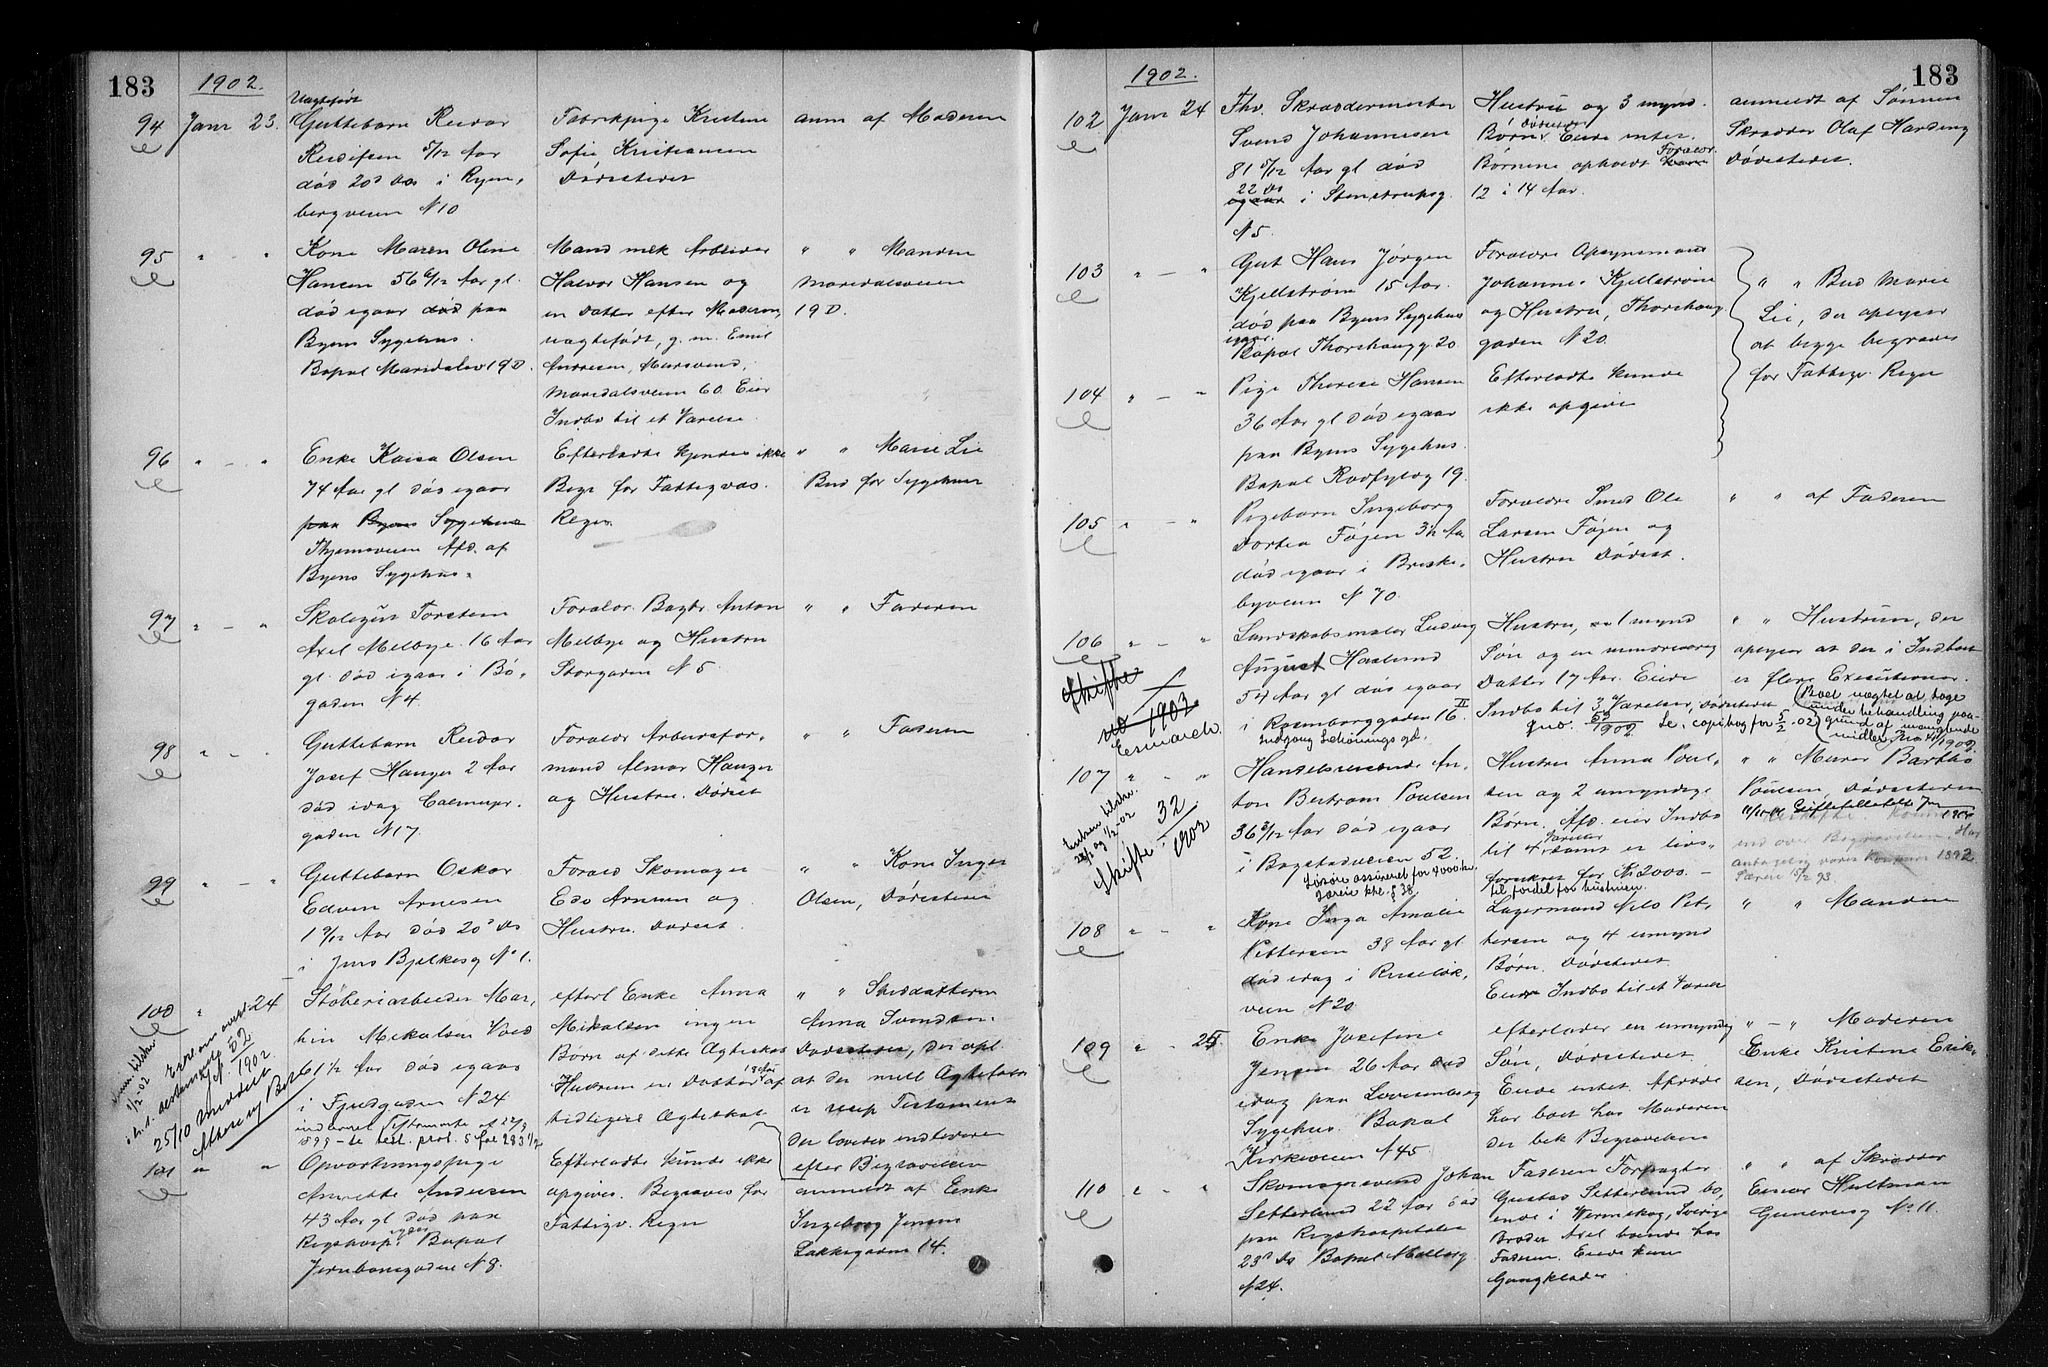 183
1902.
94 Janr 23.
Uægtefødt
Guttebarn Reidar
5/12 Aar
død 20d Ds i Ryen,
bergveien N 10
Fabrikpige Kristine
Sofie Kristiansen
Dødsstedet
anm af Moderen
95 " - "
Kone Maren Oline
Hansen 56 6/12 Aar gl.
død igaar død paa
Byens Sygehus.
Bopal Maridalsv 19D.
Mand mek Arbeider
Halvor Hansen og
en Datter efter Moderen,
uægtefødt, g. m. Emil
Murersvend,
Maridalsveien 60. Eier
Indbo til et Værelse.
" " Manden
Maridalsveien
19D.
96 " - "
Enke Kaisa Olsen
74 Aar gl død igaar
paa Byens Sygehus
Afd. af
Byens Sygehus.
Efterladte kjendes ikke
Begr for Fattigvæs.
Regn.
" " Marie Lie
Bud for Sygehuset
97 " - "
Skolegut Torstein
Axel Melbye 16 Aar
gl. død igaar i Bo,
gaden N 4.
Foraldr. Anton
Melbye og Hustru
Storgaden N 5
" " Faderen
98 " - "
Guttebarn Reidar
Josef Hanger 2 Aar
død idag Calmeyer.
gaden N 17.
Foraldr Arbeidsfor,
mand Hanger
og Hustru. Dødsst
" " Faderen
99 " - "
Guttebarn Oskar
Edvin Arnesen
1 9/12 Aar død 20d Ds
i Jens Bjelkesg No 1.
Forald Skomager
Arnesen og
Hustru. Dødsst.
" " Kone Inger
Olsen, Dødsstedet
100 " 24
Støberiarbeider Mar,
tin Mikalsen
61 1/2 Aar død igaar
i Fjeldgaden N 24
indleveret Testamente af
1899 - se test. prot. 5 fol 283 1/2
efterl Enke Anna
Mikalsen ingen
Børn af dette Ægteskab
Hustruen en Datter 18 Aar af
tidligere Ægteskab
" " Steddatteren
Anna Svendsen.
Dødsstedet, der opl
at der mell Ægtefolkene
er opr Testament
der loves indleveret
efter Begravelsen
52
1902
25/10 meddelt
101 " "
Opvartningspige
Annette Andersen
43 Aar gl død paa
Rigshosp. igaar Bopal
Jernbanegaden N 8.
Efterladte kunde ikke
opgives. Begraves for
Fattigv. Regn
anmeldt af Enke
Ingeborg Jensen
Lakkegaden 14.
183
1902.
102 Janr 24
Fhv. Skræddermester
Svend Johannesen
81 5/12 Aar gl død
22 Ds
igaar i Stenstrupsg
N 5.
Hustru og 3 mynd.
Børn, Dødsstedet Eiede intet.
Børnene opholdt Foraldr.
12 à 14 Aar.
anmeldt af Sønnen
Skrædder Olaf
Dødsstedet.
103 " - "
Gut Hans Jørgen
Kjellstrøm 15 Aar.
død paa Byens Sygehus
igaar.
Bopal Thorshaugg. 20
Foraldre Opsynsmand
Johannes Kjellstrøm
og Hustru, Thorshaug
gaden N 20.
" " Bud Marie
Lie, der oplyser
at begge begraves
for Fattigv. Regn
104 " - "
Pige Therese Hansen
36 Aar gl død igaar
paa Byens Sygehus.
Bopal Rodfyllog 19.
Efterladte kunde
ikke opgives
105 " - "
Pigebarn Ingeborg
Dortea Føjen 3 1/2 Aar
død igaar i Briske,
byveien N 70.
Foraldre Smed Ole
Larsen Føjen og
Hustru Dødsst.
" " af Faderen
106 " - "
Landskabsmaler Ludvig
August Haslund
54 Aar gl død igaar
i Rosenborggaden 16 II
Indgang Schønnings gd.
Hustru, 1 mynd
Søn og en mindreaarig
Datter 17 Aar. Eiede
Indbo til 3 Værelser, Dødsstedet
Jno. 53/1902. Se, copibog for 5/2 - 02
" " Hustruen, der
oplyser at der i Indboet
er flere Executioner.
Boet nægtet at tage
under behandling paa
grund af manglende
midler, Jno 41/1902.
Skifte
1903
Esmarch.
107 " - "
Handelsreisende An,
ton Bertram Poulsen
36 3/12 Aar død igaar
i Bogstadveien 52.
Løsøre assureret for 4000 kr.
Hustru Anna Poul,
sen og 2 umyndige
Børn. Afd. eier Indbo
til 4 Værelser samt er livs,
forsikret for Kr 2000. -
til fordel for hustruen.
" " Murer
Poulsen, Dødsstedet
Skifte: 32
1902
108 " - "
Kone Inga Amalie
Pettersen 38 Aar gl
død idag i Ruseløk,
veien N 20
Lagermand Nils Pet,
tersen og 4 umynd
Børn. Dødsstedet.
Eiede Indbo til et Værel
" " Manden
109 " - 25.
Enke Josefine
Jensen 26 Aar død
idag paa Lovisenberg
Sygehus. Bopal
Kirkeveien N 45
efterlader en umyndig
Søn, Dødsstedet.
Eiede intet. Afdøde
har boet hos Moderen
der bek Begravelsen
" - " Moderen
Enke Kristine Erik,
sen, Dødsstedet
110 " - "
Skomagersvend Johan
Setterlund 22 Aar død
paa Rigshospitalet
23d Ds Bopal
N 24.
Faderen Forpagter
Gustav Setterlund bo,
ende i Sverige
Broder Axel boende hos
Faderen. Eiede kun
Gangklæder
" " af Skrædder
Einar Hultman
Gunerusg No 11.